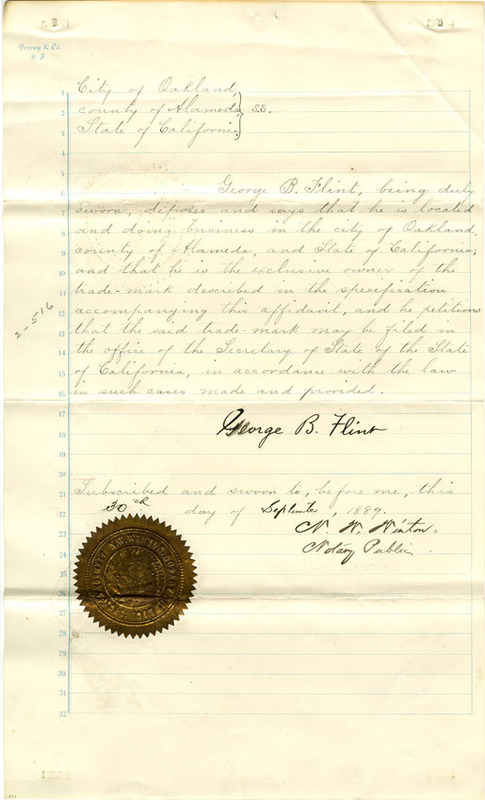 Dewey & Co.
S. F.
City of Oakland,
county of Alameda, } S.S.
State of California,
George B. Flint, being duly
sworn, deposes and says that he is located
and doing business in the city of Oakland,
county of Alameda, and State of California;
and that he is the exclusive owner of the
trade-mark described in the specification
accompanying this affidavit, and he petitions
that the said trade-mark may be filed in
the office of the Secretary of State of the State
of California, in accordance with the law
in such cases made and provided.
2-516
George B. Flint
Subscribed and sworn to, before me, this
30th day of September, 1889.
Notary Public
1
2
3
4
5
6
7
8
9
10
11
12
13
14
15
16
17
18
19
20
21
22
23
24
25
26
27
28
29
30
31
32